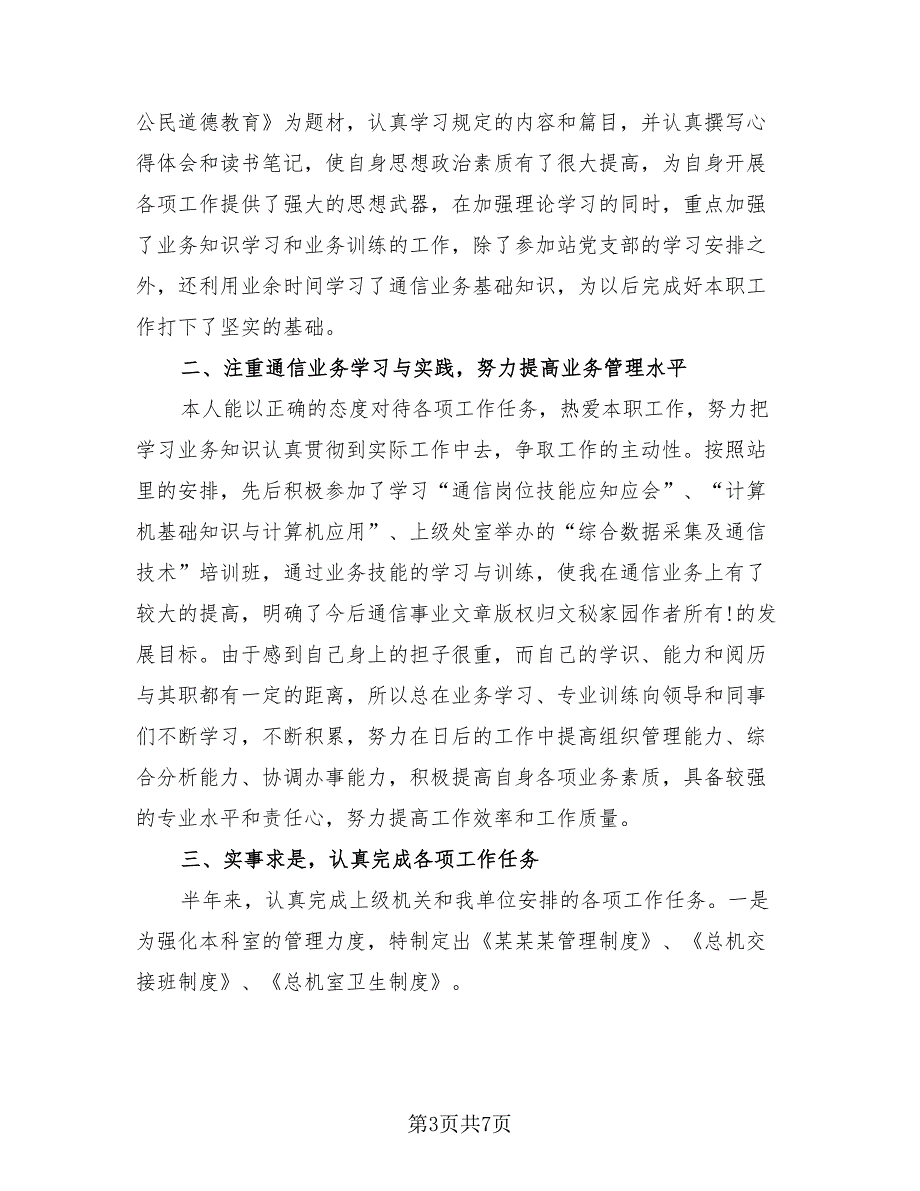 公民道德教育》为题材，认真学习规定的内容和篇目，并认真撰写心
得体会和读书笔记，使自身思想政治素质有了很大提高，为自身开展
各项工作提供了强大的思想武器，在加强理论学习的同时，重点加强
了业务知识学习和业务训练的工作，除了参加站党支部的学习安排之
外，还利用业余时间学习了通信业务基础知识，为以后完成好本职工
作打下了坚实的基础。
二、注重通信业务学习与实践，努力提高业务管理水平
本人能以正确的态度对待各项工作任务，热爱本职工作，努力把
学习业务知识认真贯彻到实际工作中去，争取工作的主动性。按照站
里的安排，先后积极参加了学习“通信岗位技能应知应会”、“计算
机基础知识与计算机应用”、上级处室举办的“综合数据采集及通信
技术”培训班，通过业务技能的学习与训练，使我在通信业务上有了
较大的提高，明确了今后通信事业文章版权归文秘家园作者所有!的发
展目标。由于感到自己身上的担子很重，而自己的学识、能力和阅历
与其职都有一定的距离，所以总在业务学习、专业训练向领导和同事
们不断学习，不断积累，努力在日后的工作中提高组织管理能力、综
合分析能力、协调办事能力，积极提高自身各项业务素质，具备较强
的专业水平和责任心，努力提高工作效率和工作质量。
三、实事求是，认真完成各项工作任务
半年来，认真完成上级机关和我单位安排的各项工作任务。一是
为强化本科室的管理力度，特制定出《某某某管理制度》、《总机交
接班制度》、《总机室卫生制度》。
第3页共7页